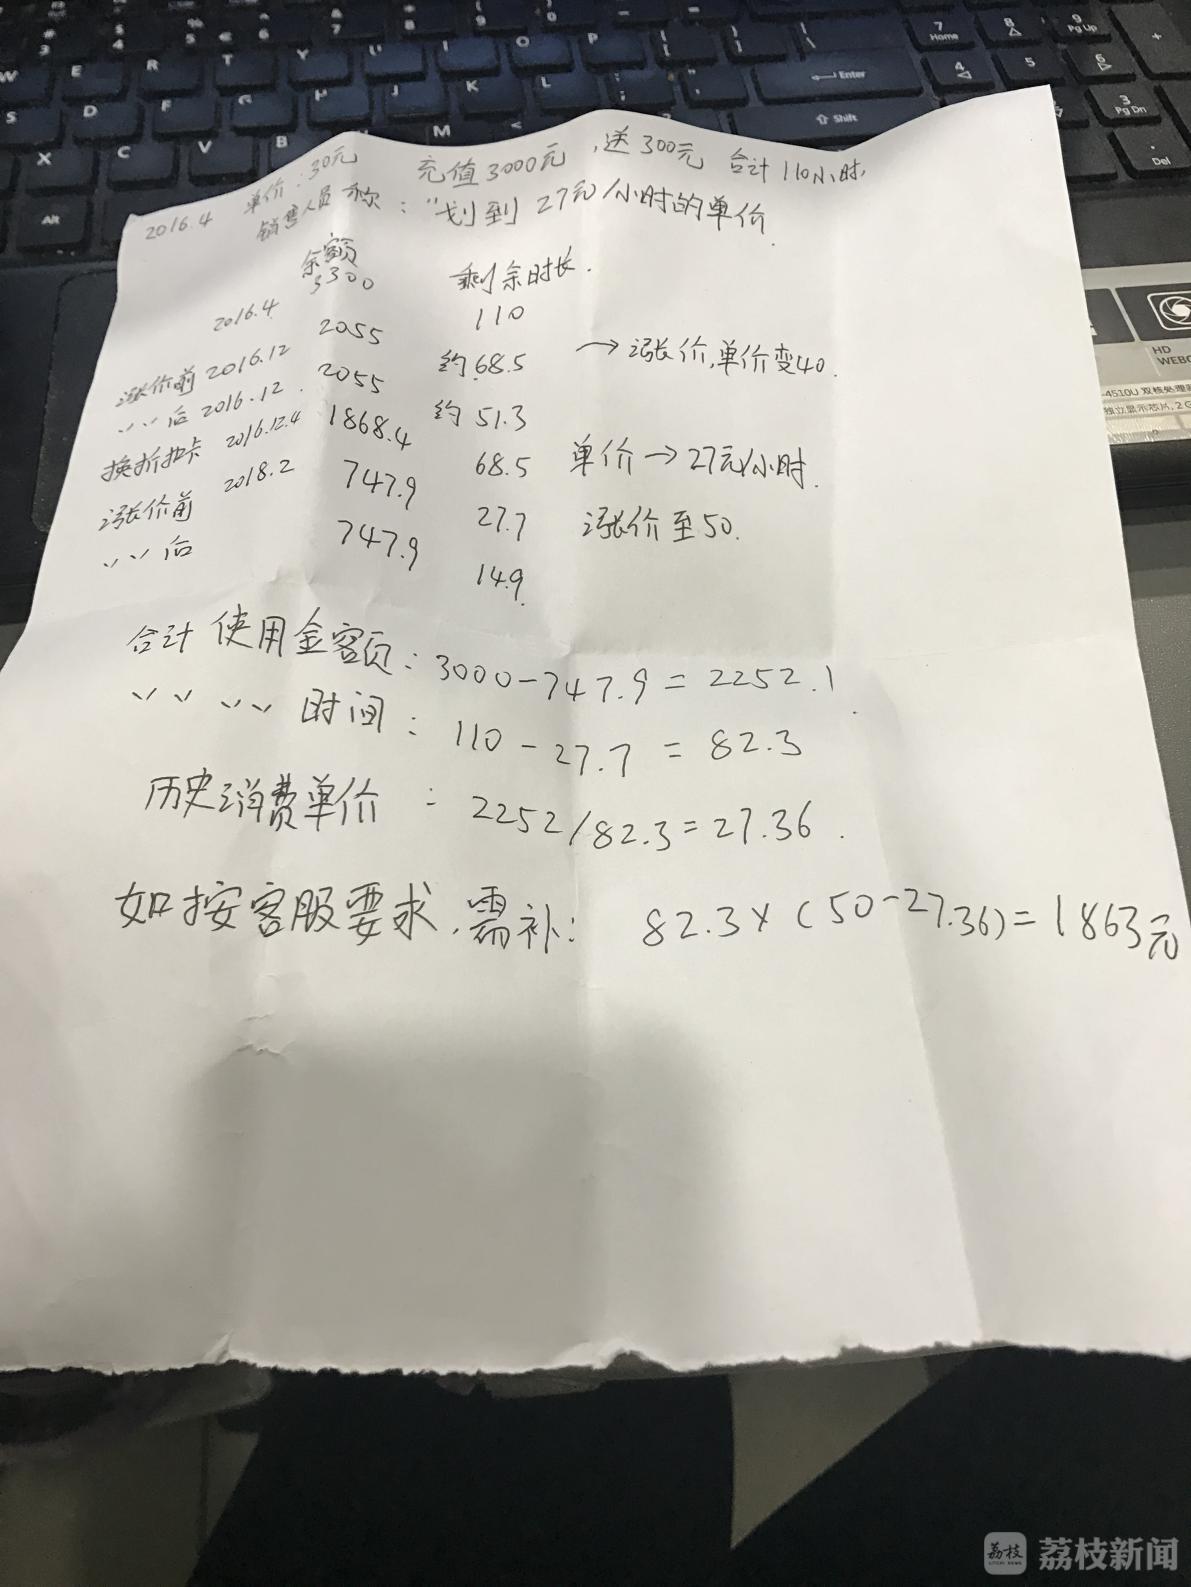 2016.4 单价:30元 充值3000元,送300元 合计110小时,
销售人员称:"划到27元/小时的单价.
余额 剩余时长.
2016.4 3300 110
涨价前 2016.12 2055 约68.5 →涨价,单价变40.
〃〃后 2016.12. 2055 约51.3
换折扣卡 2016.12.4 1868.4 68.5 单价→27元/小时.
涨价前 2018.2 747.9 27.7 涨价至50.
〃〃后 747.9 14.9
合计使用金额:3000-747.9=2252.1
〃〃〃〃时间:110-27.7=82.3
历史消费单价:2252/82.3=27.36.
如按客服要求,需补: 82.3×(50-27.36)=1863元
荔枝
荔枝新闻
W E R T Y U I O P
S D F G H J K L
X C V B M
Enter
Shift
Alt
7 Home
8
9 Pg Up
4
5
6
3 Pg Dn
Del
HD
-4510U 双核处理器
独立显示芯片,2 G